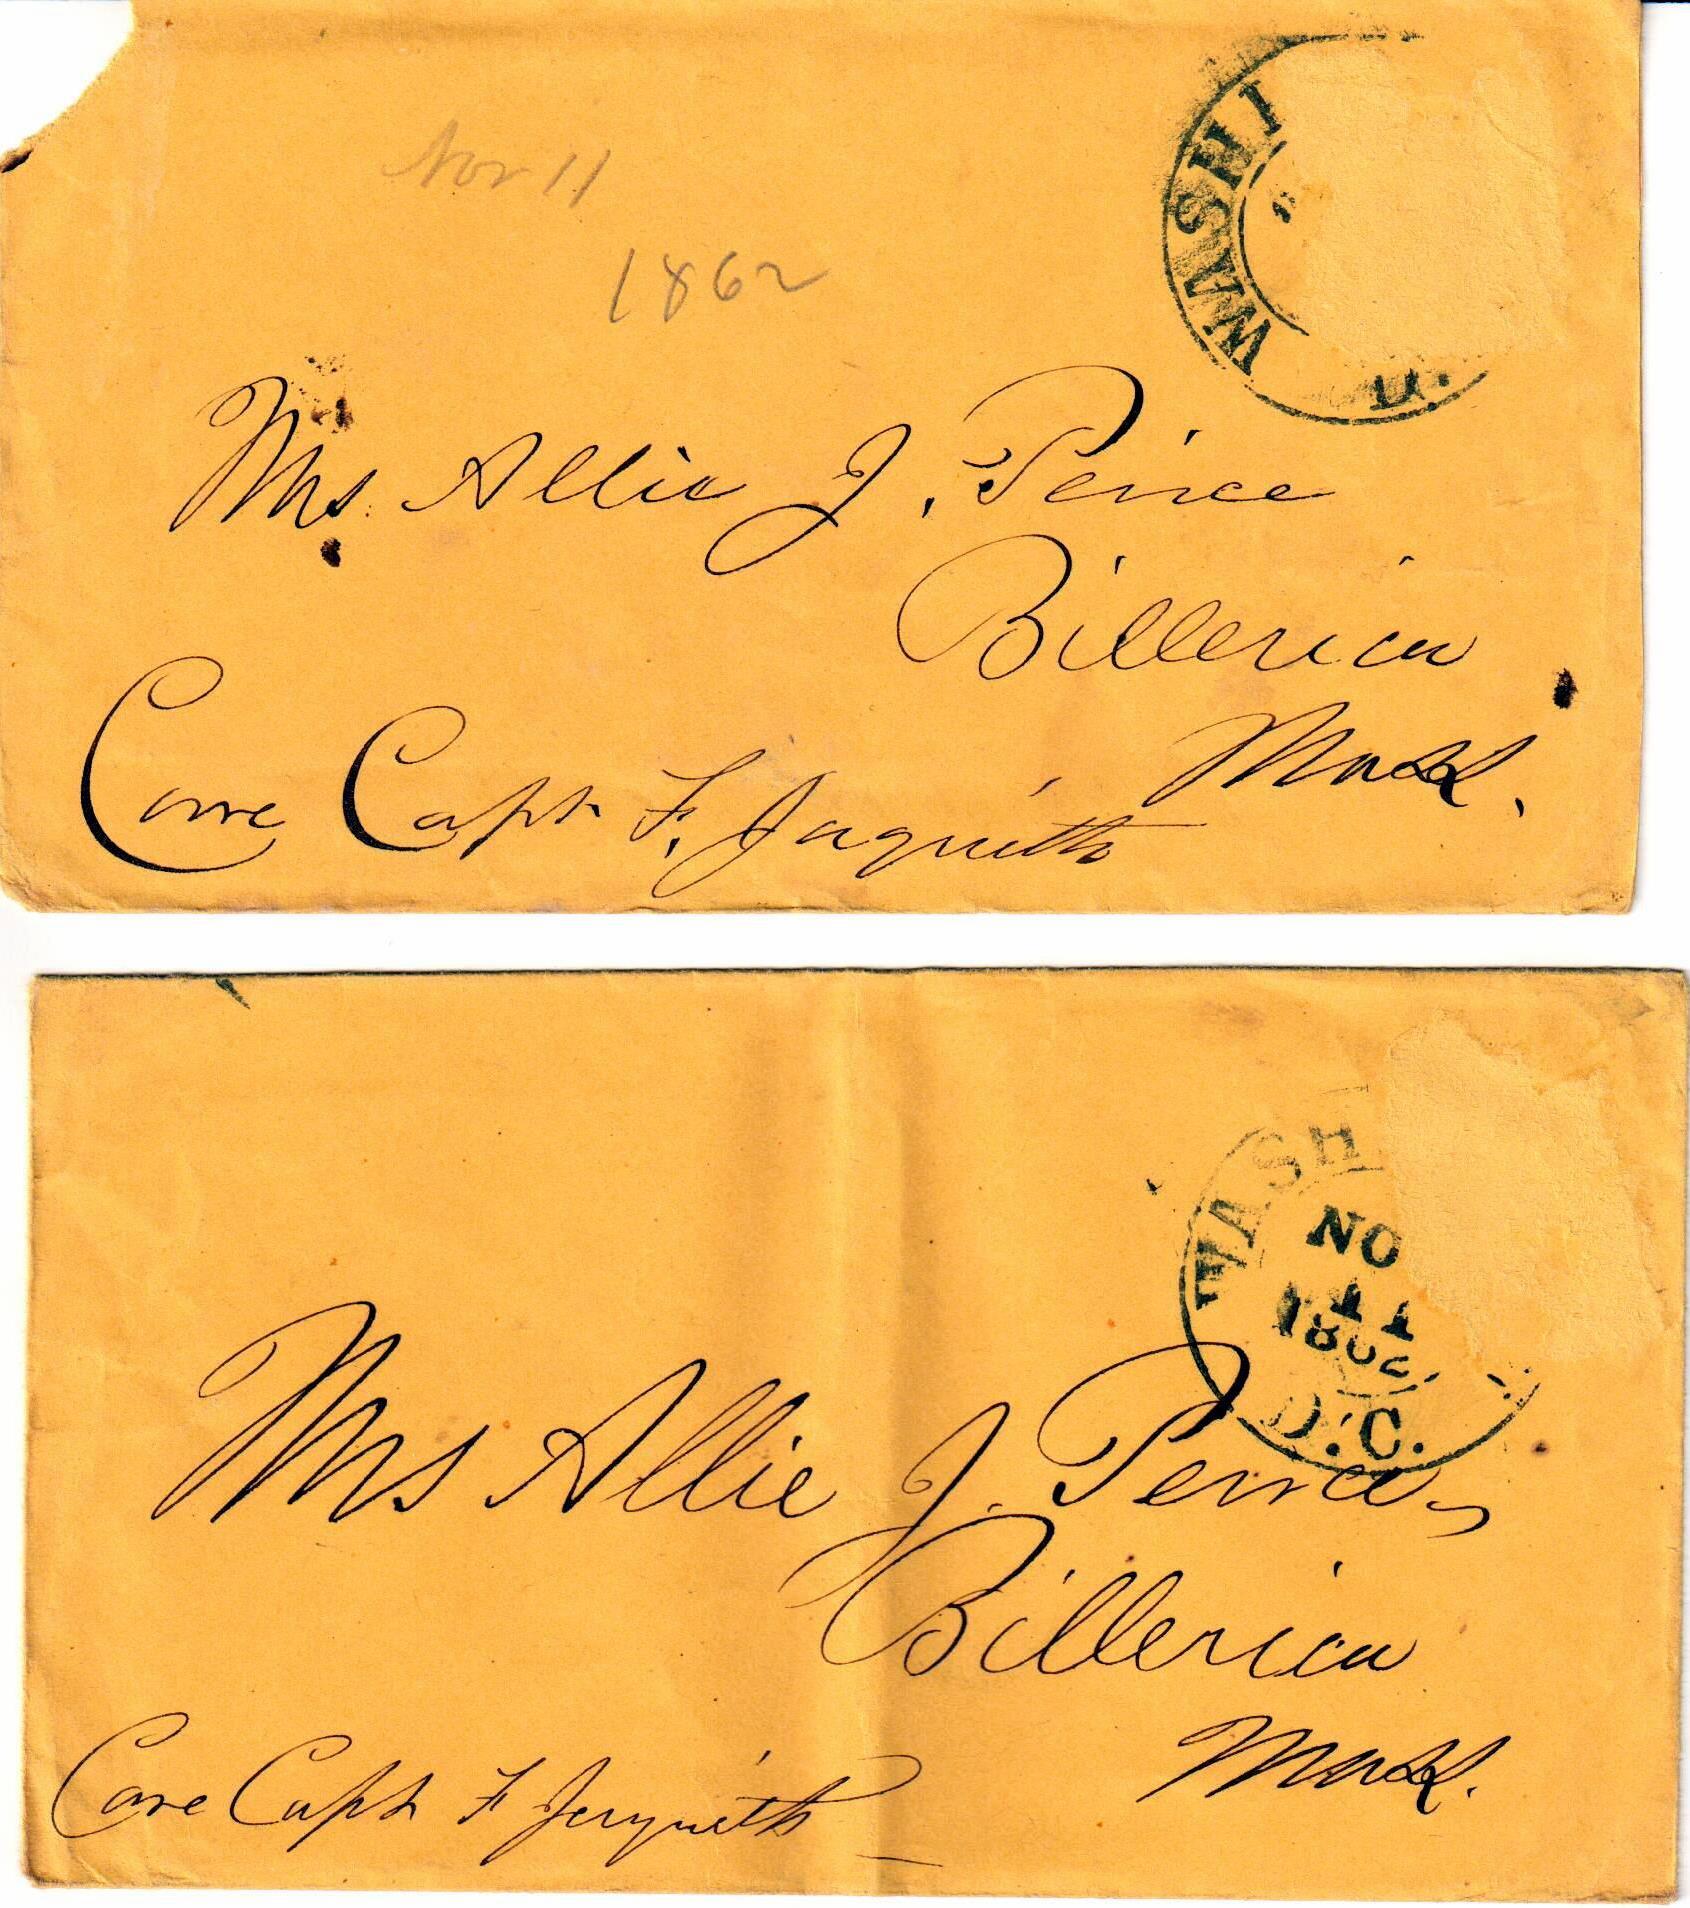 Nov 11
1862
WASHI
D.
Mrs. Allie J. Peirce
Billerica
Mass.
Care Capt F. Jaquith
WASH
NO
11
1862
D.C.
Mrs Allie J. Peirce
Billerica
Mass.
Care Capt F Jaquith